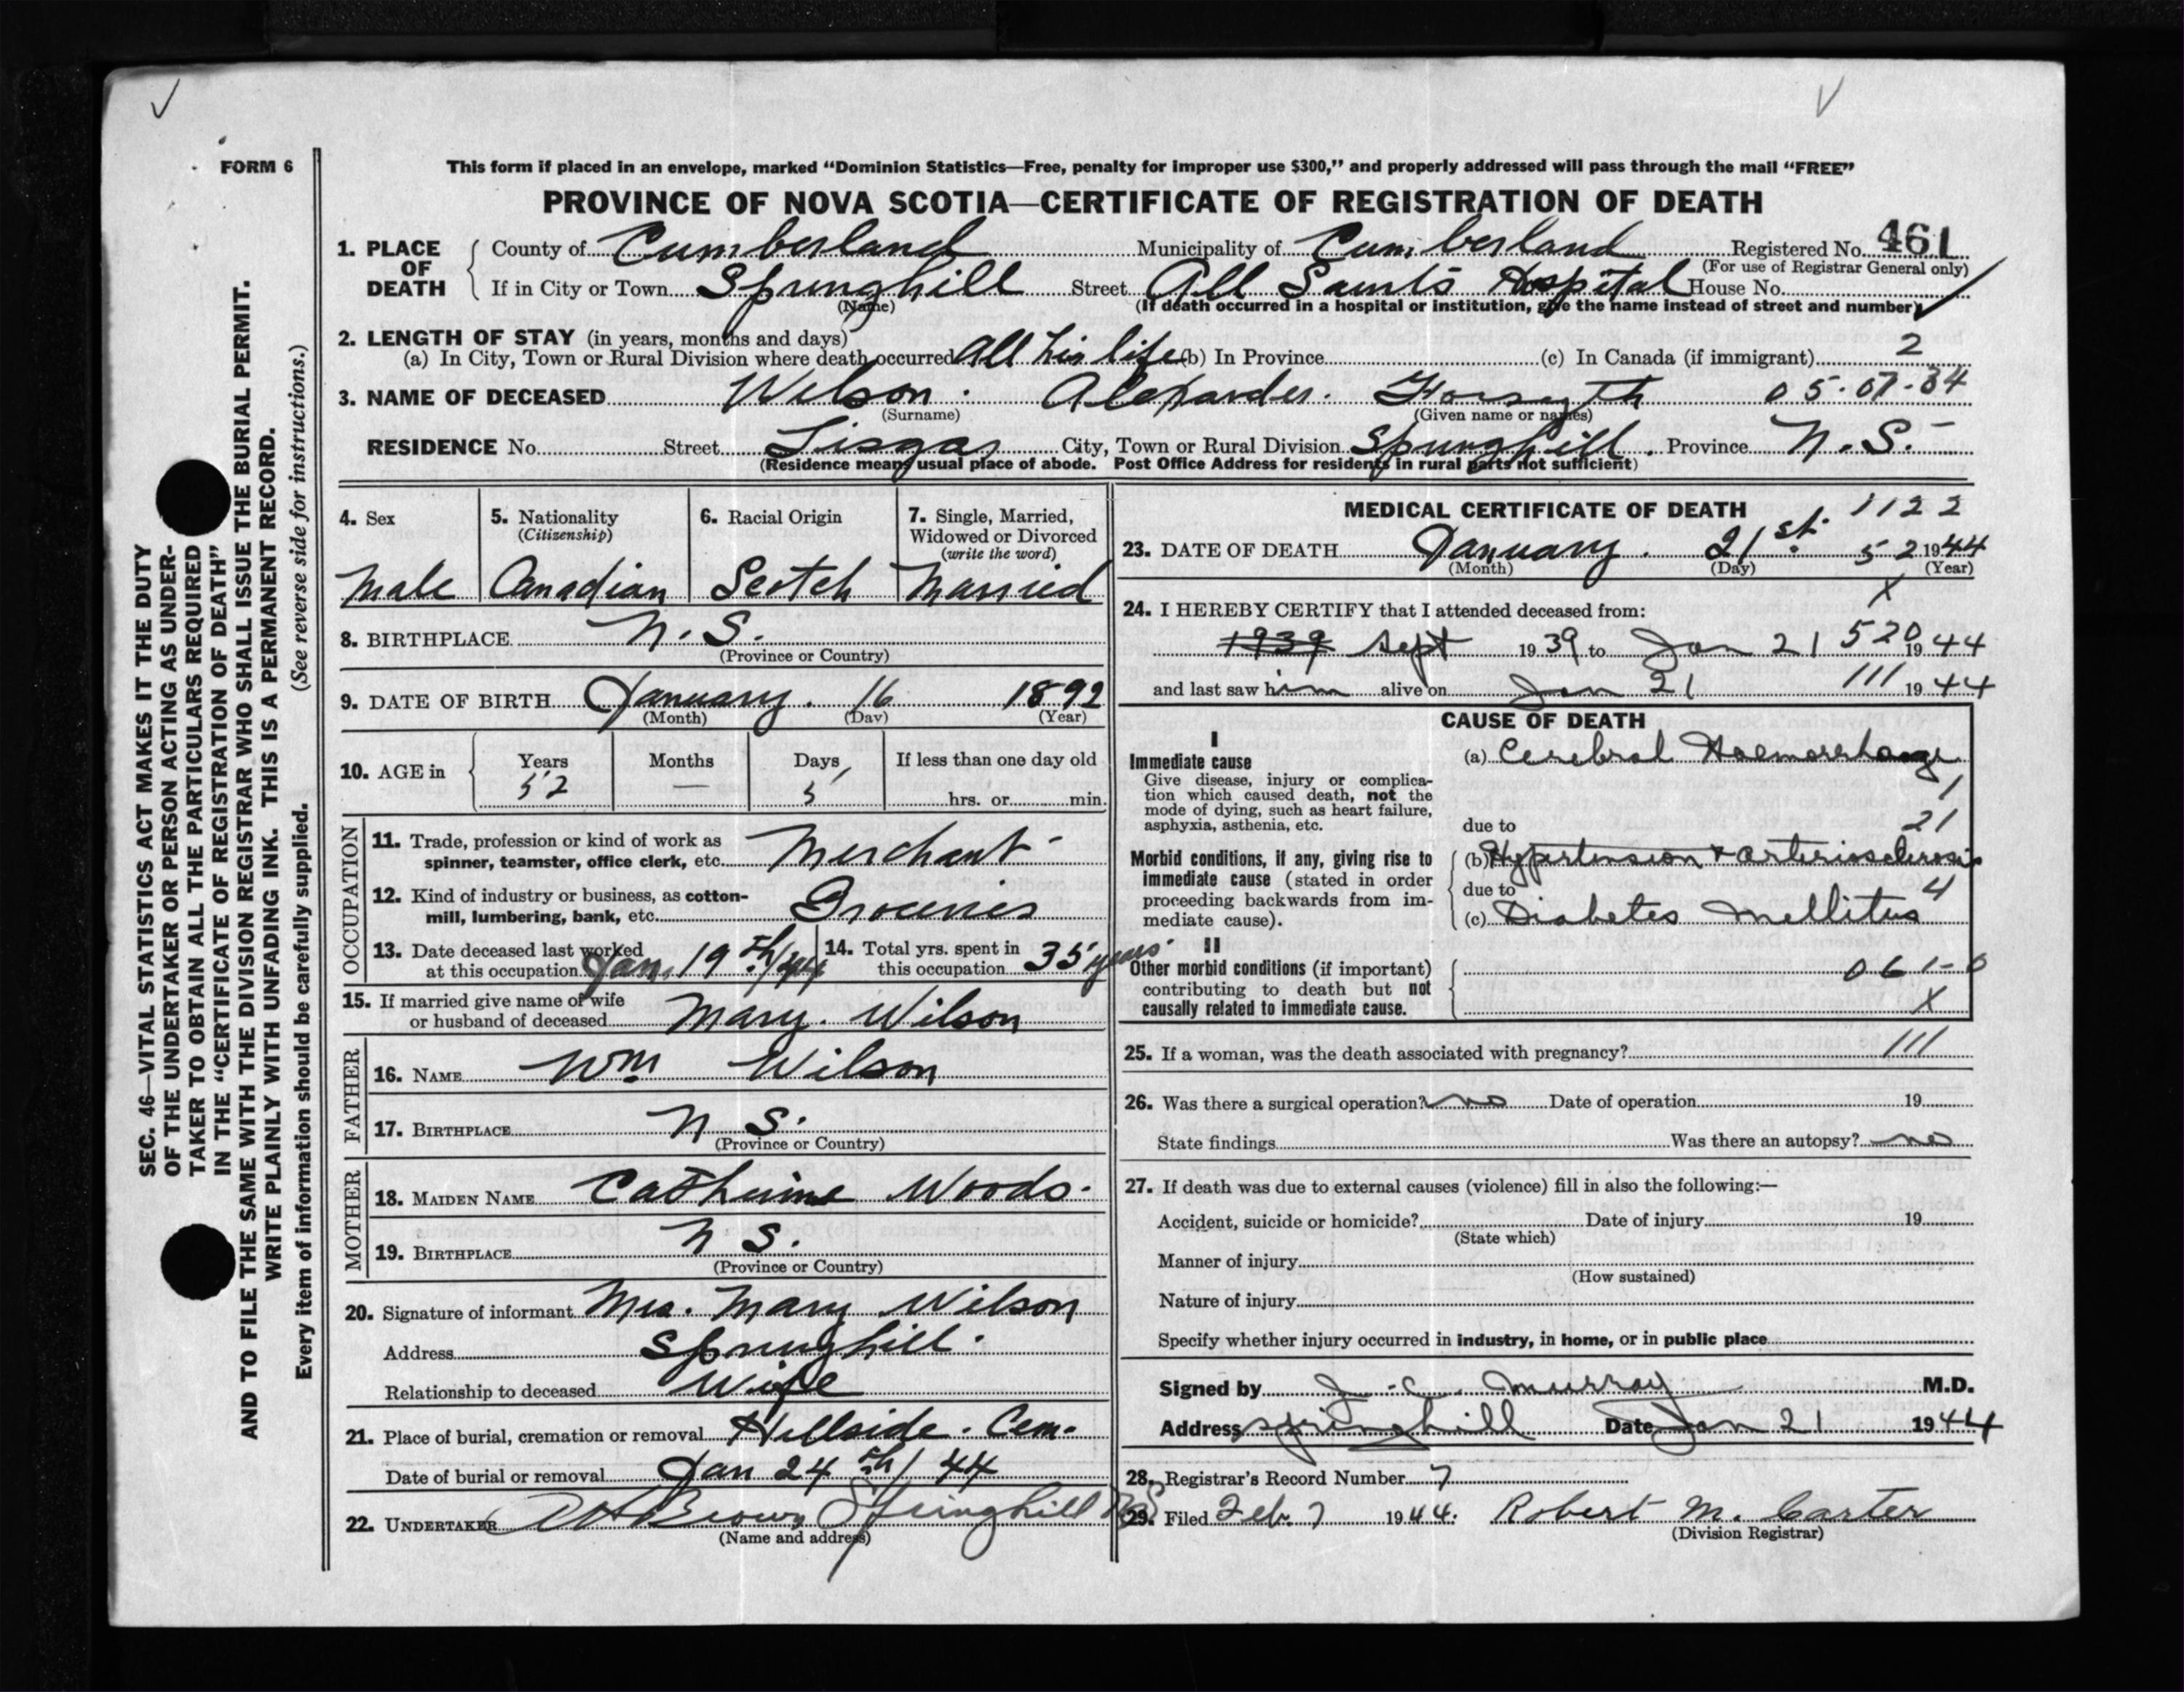 FORM 6
This form if placed in an envelope, marked “Dominion Statistics—Free, penalty for improper use $300,” and properly addressed will pass through the mail “FREE”
PROVINCE OF NOVA SCOTIA—CERTIFICATE OF REGISTRATION OF DEATH
1. PLACE OF DEATH County of Cumberland Municipality of Cumberland Registered No. 461
(For use of Registrar General only)
If in City or Town Springhill Street All Saints Hospital House No.
(Name) (If death occurred in a hospital or institution, give the name instead of street and number)
2. LENGTH OF STAY (in years, months and days)
(a) In City, Town or Rural Division where death occurred All his life (b) In Province (c) In Canada (if immigrant) 2
3. NAME OF DECEASED Wilson. Alexander. Forsyth 05-07-84
(Surname) (Given name or names)
RESIDENCE No. Street Lisgar City, Town or Rural Division Springhill. Province N.S.
(Residence means usual place of abode. Post Office Address for residents in rural parts not sufficient)
SEC. 46—VITAL STATISTICS ACT MAKES IT THE DUTY
OF THE UNDERTAKER OR PERSON ACTING AS UNDER-
TAKER TO OBTAIN ALL THE PARTICULARS REQUIRED
IN THE “CERTIFICATE OF REGISTRATION OF DEATH”
AND TO FILE THE SAME WITH THE DIVISION REGISTRAR WHO SHALL ISSUE THE BURIAL PERMIT.
WRITE PLAINLY WITH UNFADING INK. THIS IS A PERMANENT RECORD.
Every item of information should be carefully supplied. (See reverse side for instructions.)
4. Sex 5. Nationality 6. Racial Origin 7. Single, Married,
(Citizenship) Widowed or Divorced
(write the word)
Male Canadian Scotch Married
8. BIRTHPLACE N.S.
(Province or Country)
9. DATE OF BIRTH January. 16 1892
(Month) (Day) (Year)
10. AGE in Years Months Days If less than one day old
52 — 5 hrs. or min.
OCCUPATION
11. Trade, profession or kind of work as
spinner, teamster, office clerk, etc. Merchant
12. Kind of industry or business, as cotton-
mill, lumbering, bank, etc. Groceries
13. Date deceased last worked
at this occupation Jan. 19th/44
14. Total yrs. spent in
this occupation 35 years
15. If married give name of wife
or husband of deceased Mary. Wilson
FATHER
16. NAME Wm Wilson
17. BIRTHPLACE N S.
(Province or Country)
MOTHER
18. MAIDEN NAME Catherine Woods.
19. BIRTHPLACE N S.
(Province or Country)
20. Signature of informant Mrs. Mary Wilson
Address Springhill.
Relationship to deceased Wife
21. Place of burial, cremation or removal Hillside. Cem.
Date of burial or removal Jan 24th/44
22. UNDERTAKER Brown Springhill NS
(Name and address)
MEDICAL CERTIFICATE OF DEATH 1122
23. DATE OF DEATH January. 21st. 52 1944
(Month) (Day) (Year)
X
24. I HEREBY CERTIFY that I attended deceased from:
1939 Sept 1939 to Jan 21 520 1944
and last saw him alive on Jan 21 111 1944
CAUSE OF DEATH
I
Immediate cause (a) Cerebral Haemorrhage
Give disease, injury or complica-
tion which caused death, not the
mode of dying, such as heart failure,
asphyxia, asthenia, etc.
1
due to 21
Morbid conditions, if any, giving rise to
immediate cause (stated in order
proceeding backwards from im-
mediate cause).
(b) Hypertension & arteriosclerosis
due to 4
(c) Diabetes Mellitus
II
Other morbid conditions (if important)
contributing to death but not
causally related to immediate cause.
061-0
X
25. If a woman, was the death associated with pregnancy? 111
26. Was there a surgical operation? no Date of operation 19
State findings Was there an autopsy? no
27. If death was due to external causes (violence) fill in also the following:—
Accident, suicide or homicide? Date of injury 19
(State which)
Manner of injury
(How sustained)
Nature of injury
Specify whether injury occurred in industry, in home, or in public place
Signed by Murray M.D.
Address Springhill Date Jan 21 1944
28. Registrar's Record Number 7
29. Filed Feb. 7 1944. Robert M. Carter
(Division Registrar)